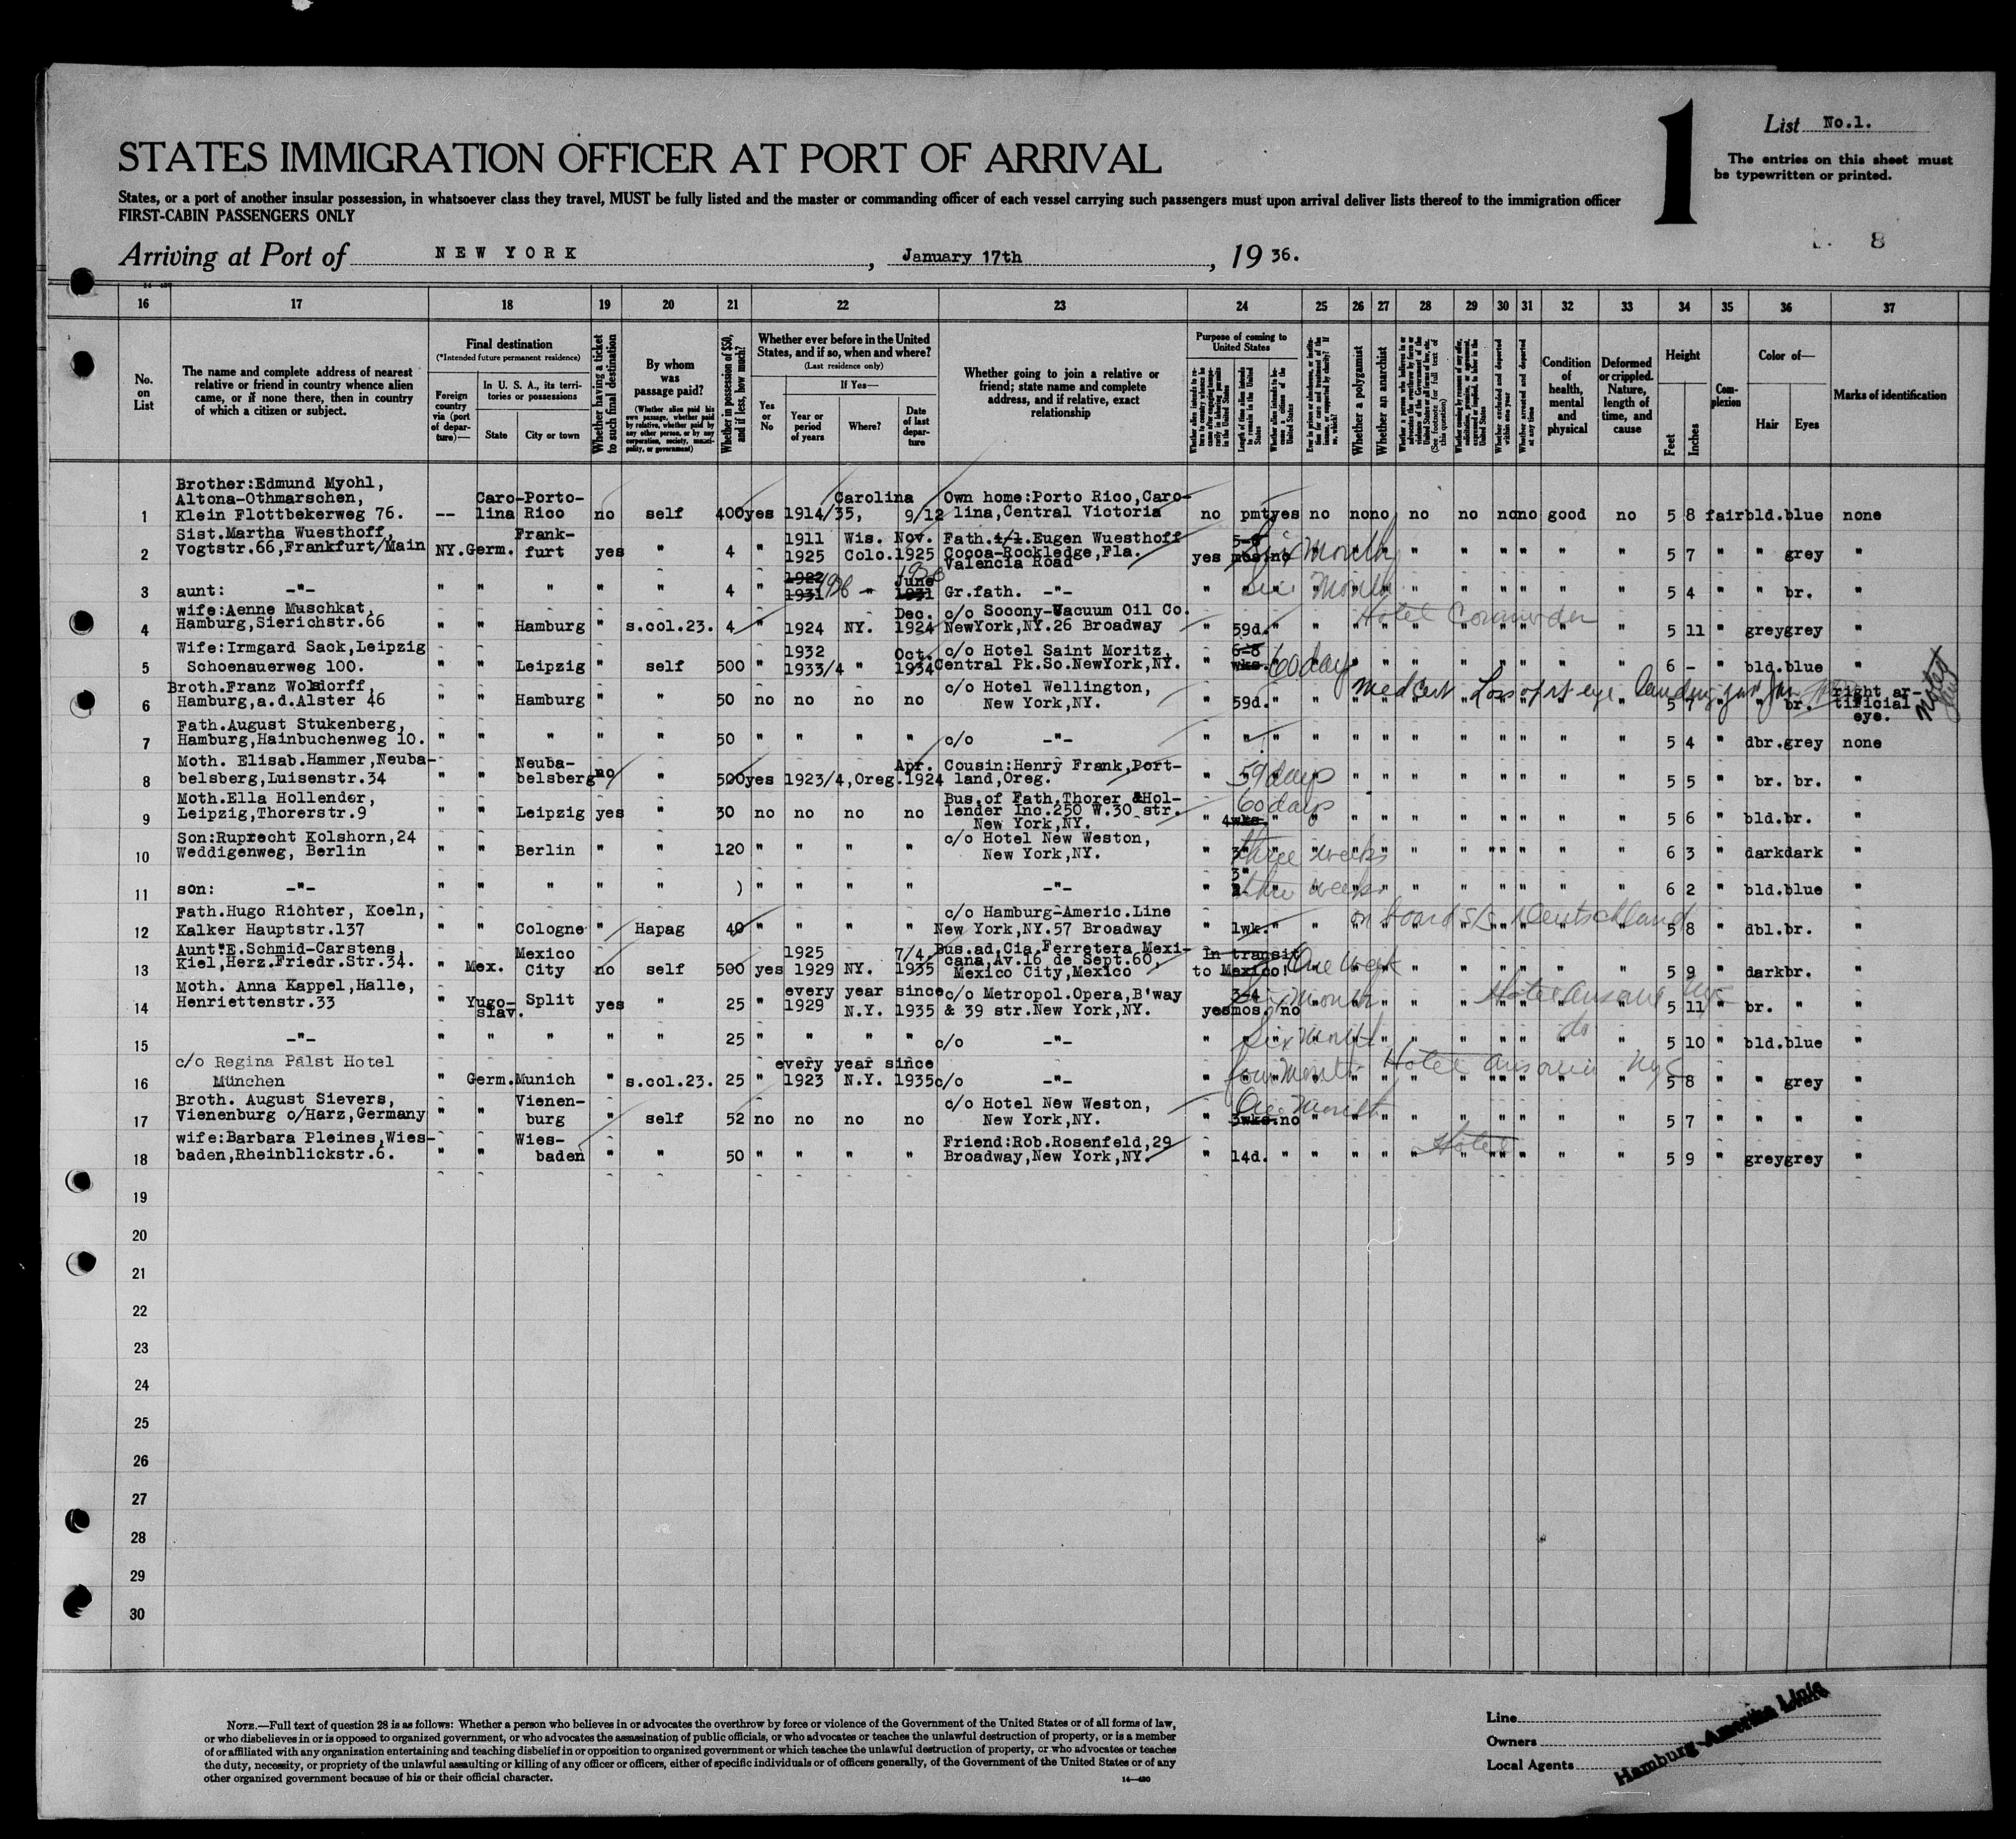 1
List No.1.
The entries on this sheet must
be typewritten or printed.
STATES IMMIGRATION OFFICER AT PORT OF ARRIVAL
States, or a port of another insular possession, in whatsoever class they travel, MUST be fully listed and the master or commanding officer of each vessel carrying such passengers must upon arrival deliver lists thereof to the immigration officer
FIRST-CABIN PASSENGERS ONLY
8
Arriving at Port of NEW YORK, January 17th, 19 36.
16 17 18 19 20 21 22 23 24 25 26 27 28 29 30 31 32 33 34 35 36 37
No. on List
The name and complete address of nearest relative or friend in country whence alien came, or if none there, then in country of which a citizen or subject.
Final destination
(*Intended future permanent residence)
Foreign country via (port of departure)—
In U. S. A., its territories or possessions
State
City or town
Whether having a ticket to such final destination
By whom was passage paid?
(Whether alien paid his own passage, whether paid by relative, whether paid by any other person, or by any corporation, society, municipality, or government)
Whether in possession of $50, and if less, how much?
Whether ever before in the United States, and if so, when and where?
(Last residence only)
Yes or No
If Yes—
Year or period of years
Where?
Date of last departure
Whether going to join a relative or friend; state name and complete address, and if relative, exact relationship
Purpose of coming to United States
Length of time alien intends to remain in the United States
Whether alien intends to become a citizen of the United States
Whether a polygamist
Whether an anarchist
Whether excluded and deported within one year
Whether arrested and deported at any time
Condition of health, mental and physical
Deformed or crippled. Nature, length of time, and cause
Height
Feet
Inches
Complexion
Color of—
Hair
Eyes
Marks of identification
Brother:Edmund Myohl,
Altona-Othmarschen, Caro-Porto- Carolina Own home:Porto Rico,Caro-
1 Klein Flottbekerweg 76. -- lina Rico no self 400 yes 1914/35, 9/12 lina,Central Victoria no pmt yes no no no no no no no good no 5 8 fair bld. blue none
Sist.Martha Wuesthoff, Frank- 1911 Wis. Nov. Fath. Eugen Wuesthoff 5-6 Six Month
2 Vogtstr.66,Frankfurt/Main NY. Germ. furt yes " 4 " 1925 Colo. 1925 Cocoa-Rockledge,Fla. yes mos. no " " " " " " " " " 5 7 " " grey "
Valencia Road
1922 June
3 aunt: -"- " " " " " 4 " 1931 " 1931 Gr.fath. -"- " Six Month " 5 4 " " br. "
wife:Aenne Muschkat, Dec. c/o Socony-Vacuum Oil Co. Hotel Commodor
4 Hamburg,Sierichstr.66 " " Hamburg " s.col.23. 4 " 1924 NY. 1924 NewYork,NY.26 Broadway " 59d. " " " " " " " " " " 5 11 " grey grey "
Wife:Irmgard Sack,Leipzig 1932 Oct. c/o Hotel Saint Moritz, 6-8
5 Schoenauerweg 100. " " Leipzig " self 500 " 1933/4 " 1934 Central Pk.So.NewYork,NY. " wks. 60 days " " " " " " " " " 6 - " bld. blue "
Broth.Franz Wolsdorff, c/o Hotel Wellington, Med Cert Loss of rt eye right ar-
6 Hamburg,a.d.Alster 46 " " Hamburg " " 50 no no no no New York,NY. " 59d. " " " " " " " " " " 5 7 " " br. tificial
eye.
noted
Fath.August Stukenberg,
7 Hamburg,Hainbuchenweg 10. " " " " " 50 " " " " c/o -"- " " " " " " " " " " " " 5 4 " dbr. grey none
Moth. Elisab.Hammer,Neuba- Neuba- Apr. Cousin:Henry Frank,Port-
8 belsberg,Luisenstr.34 " " belsberg no " 500 yes 1923/4,Oreg. 1924 land,Oreg. " 59 days " " " " " " " " " 5 5 " br. br. "
Moth.Ella Hollender, Bus.of Fath.Thorer &Hol- 60 days
9 Leipzig,Thorerstr.9 " " Leipzig yes " 30 no no no no lender Inc.250 W.30 str. " 4wks. " " " " " " " " " " 5 6 " bld. br. "
New York,NY.
Son:Ruprecht Kolshorn,24 c/o Hotel New Weston,
10 Weddigenweg, Berlin " " Berlin " " 120 " " " " New York,NY. " 3" three weeks " " " " " " " " 6 3 " dark dark "
3"
11 son: -"- " " " " " ) " " " " -"- " three weeks " " " " " " " " 6 2 " bld. blue "
Fath.Hugo Richter, Koeln, c/o Hamburg-Americ.Line on board S/S Deutschland
12 Kalker Hauptstr.137 " " Cologne " Hapag 40 " " " " New York,NY.57 Broadway " 1wk. " " " " " " " " " 5 8 " dbl. br. "
Aunt:E.Schmid-Carstens, Mexico 1925 7/4, Bus.ad.Cia.Ferretera Mexi- In transit
13 Kiel,Herz.Friedr.Str.34. " Mex. City no self 500 yes 1929 NY. 1935 cana,Av.16 de Sept.60, to Mexico! One week " " " " " " " " 5 9 " dark br. "
Mexico City,Mexico
Moth. Anna Kappel,Halle, every year since c/o Metropol.Opera,B'way 3-4 Six month Hotel Ansonia NYC
14 Henriettenstr.33 " Yugo-slav. Split yes " 25 " 1929 N.Y. 1935 & 39 str.New York,NY. yes mos. no " " " " " " " " 5 11 " br. " "
15 -"- " " " " " 25 " " " " c/o -"- " Six Month do " " " " " " 5 10 " bld. blue "
c/o Regina Palst Hotel every year since
16 München " Germ. Munich " s.col.23. 25 " 1923 N.Y. 1935 c/o -"- " four Month Hotel Ansonia NYC 5 8 " " grey "
Broth. August Sievers, Vienen- c/o Hotel New Weston, One Month
17 Vienenburg o/Harz,Germany " " burg " self 52 no no no no New York,NY. " 3wks. no " " " " " " " " " 5 7 " " " "
wife:Barbara Pleines,Wies- Wies- Friend:Rob.Rosenfeld,29 Hotel
18 baden,Rheinblickstr.6. " " baden " " 50 " " " " Broadway,New York,NY. " 14d. " " " " " " " " " " 5 9 " grey grey "
19
20
21
22
23
24
25
26
27
28
29
30
NOTE.—Full text of question 28 is as follows: Whether a person who believes in or advocates the overthrow by force or violence of the Government of the United States or of all forms of law,
or who disbelieves in or is opposed to organized government, or who advocates the assassination of public officials, or who advocates or teaches the unlawful destruction of property, or is a member
of or affiliated with any organization entertaining and teaching disbelief in or opposition to organized government or which teaches the unlawful destruction of property, or who advocates or teaches
the duty, necessity, or propriety of the unlawful assaulting or killing of any officer or officers, either of specific individuals or of officers generally, of the Government of the United States or of any
other organized government because of his or their official character.
14—430
Line
Owners
Local Agents
Hamburg-Amerika Linie